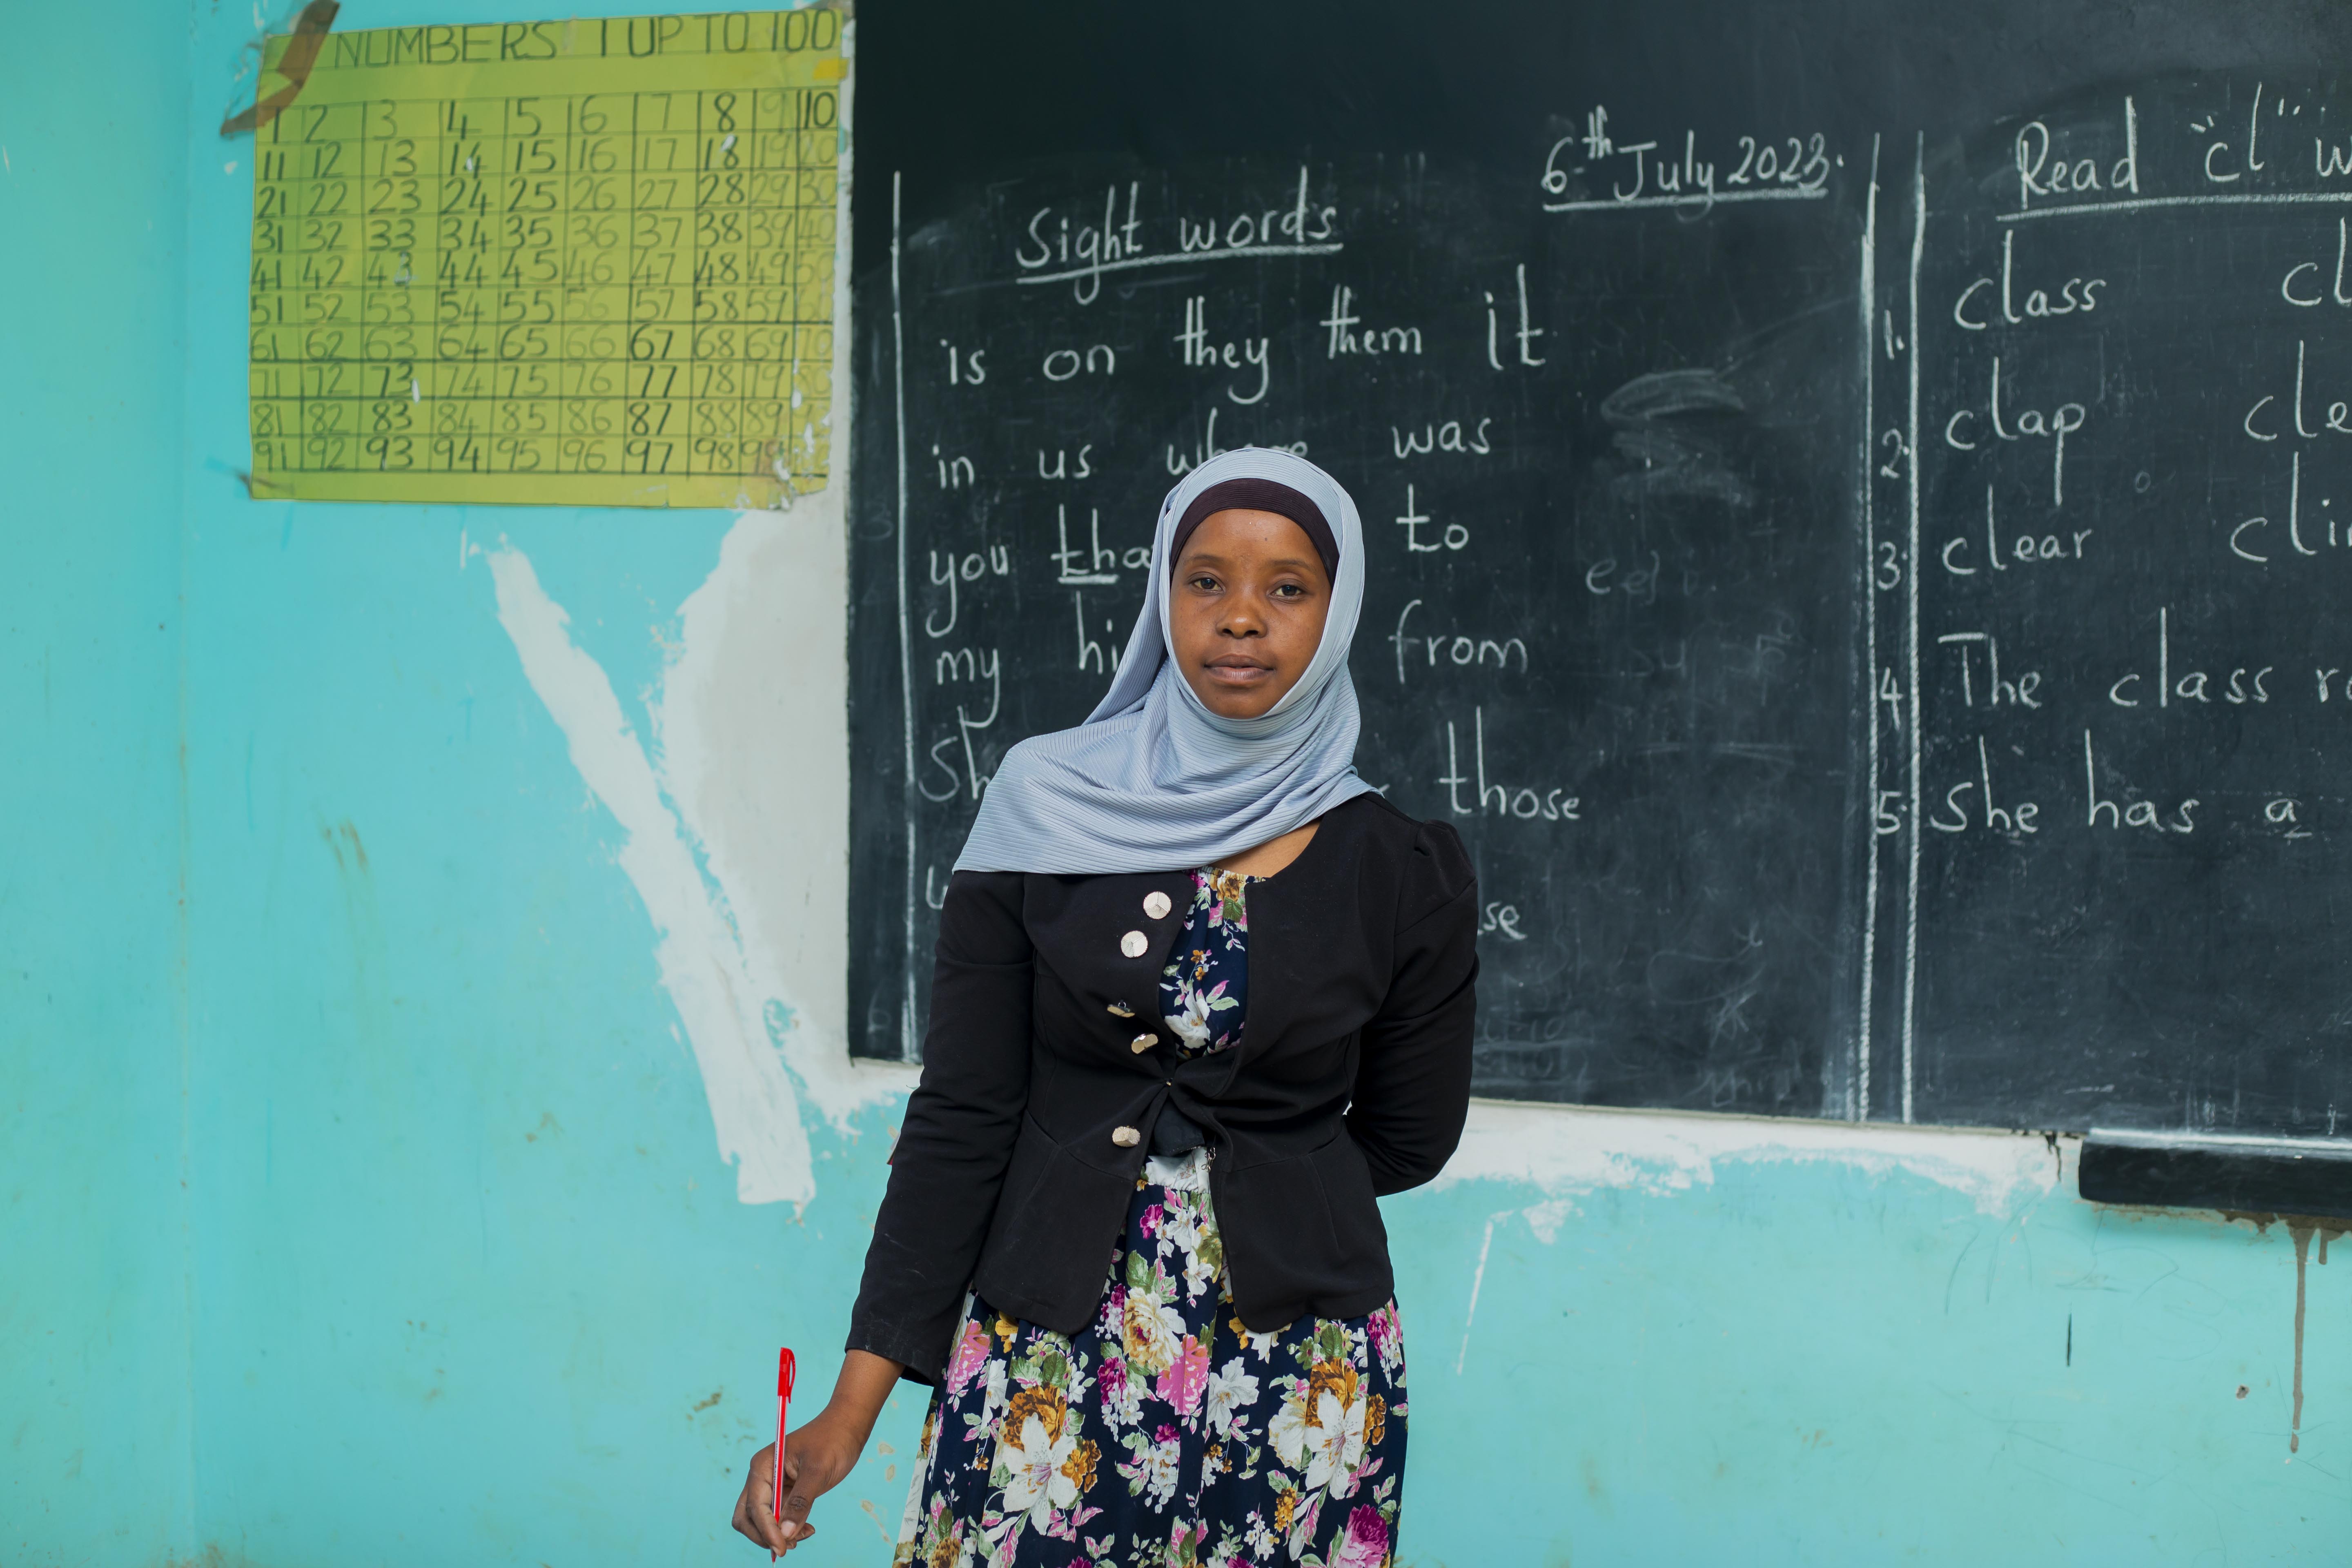 NUMBERS 1 UP TO 100
1 2 3 4 5 6 7 8 9 10
11 12 13 14 15 16 17 18 19 20
21 22 23 24 25 26 27 28 29 30
31 32 33 34 35 36 37 38 39 40
41 42 43 44 45 46 47 48 49 50
51 52 53 54 55 56 57 58 59 60
61 62 63 64 65 66 67 68 69 70
71 72 73 74 75 76 77 78 79 80
81 82 83 84 85 86 87 88 89
91 92 93 94 95 96 97 98 99
6th July 2023.
Sight words
is on they them it
in us where was
you tha to
my hi from
Sh those
se
Read "cl" w
1. class cl
2. clap cle
3. clear cli
4 The class r
5. She has a